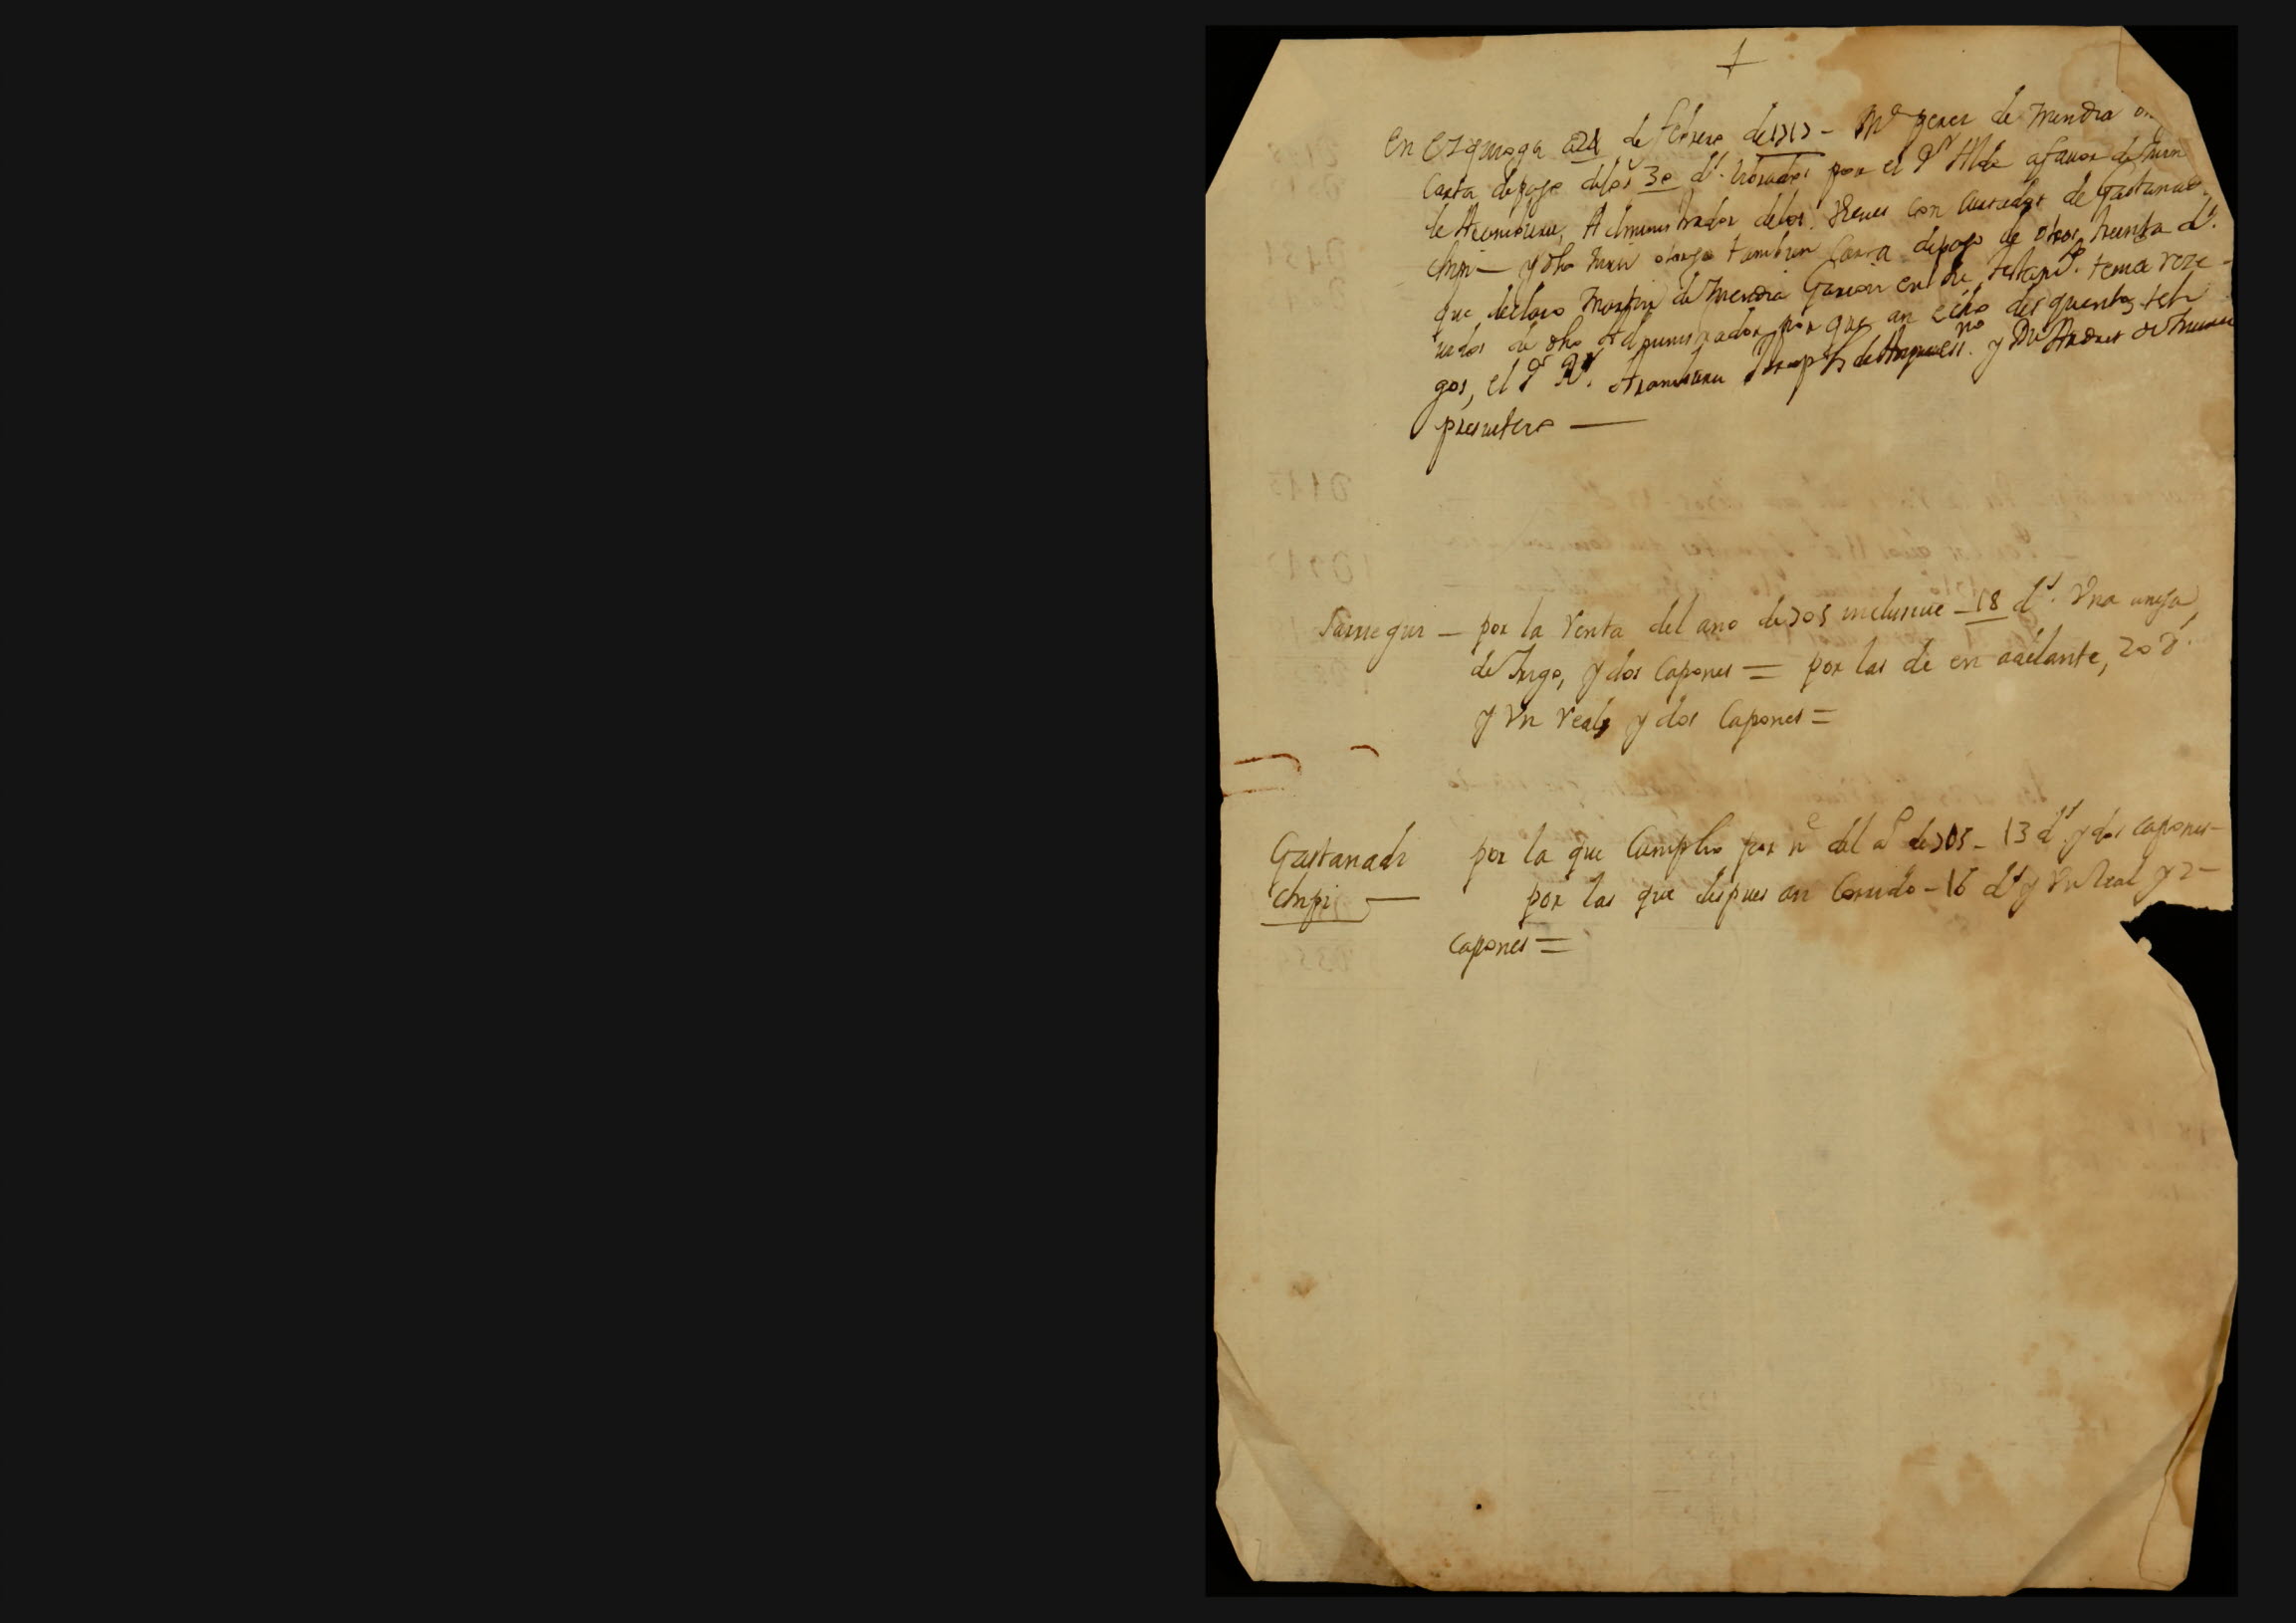 En Ezquioga a 24 de febrero de 1717 - M.ª perez de Mendia
Carta de pago de los 30 d.s librados por el S.r Alde a fauor de
de Aramburu, Administrador de los Vienes con cursados de Gastanad
chipi — y dho otorgo tambien Carta de pago de otros treinta d.s
que declaro Martin de Mendia Garson en su testam.to tenia reze
uidos de dho Administrador, por que an echo des quento, tes
gos, el S.r R.r Aramburu y Dn Andres de
presuitero —
por la renta del ano de 705 inclusiue - 18 d.s Vna anega
de trigo, y dos Capones = por las de en adelante, 20 d.s
y Vn real, y dos Capones =
Gastanadi por la que Cumplio por n.e del a.o de 705 - 13 d.s y dos capones -
chipi — por las que despues an Corrido - 16 d.s y Vn Real y 2 -
Capones =